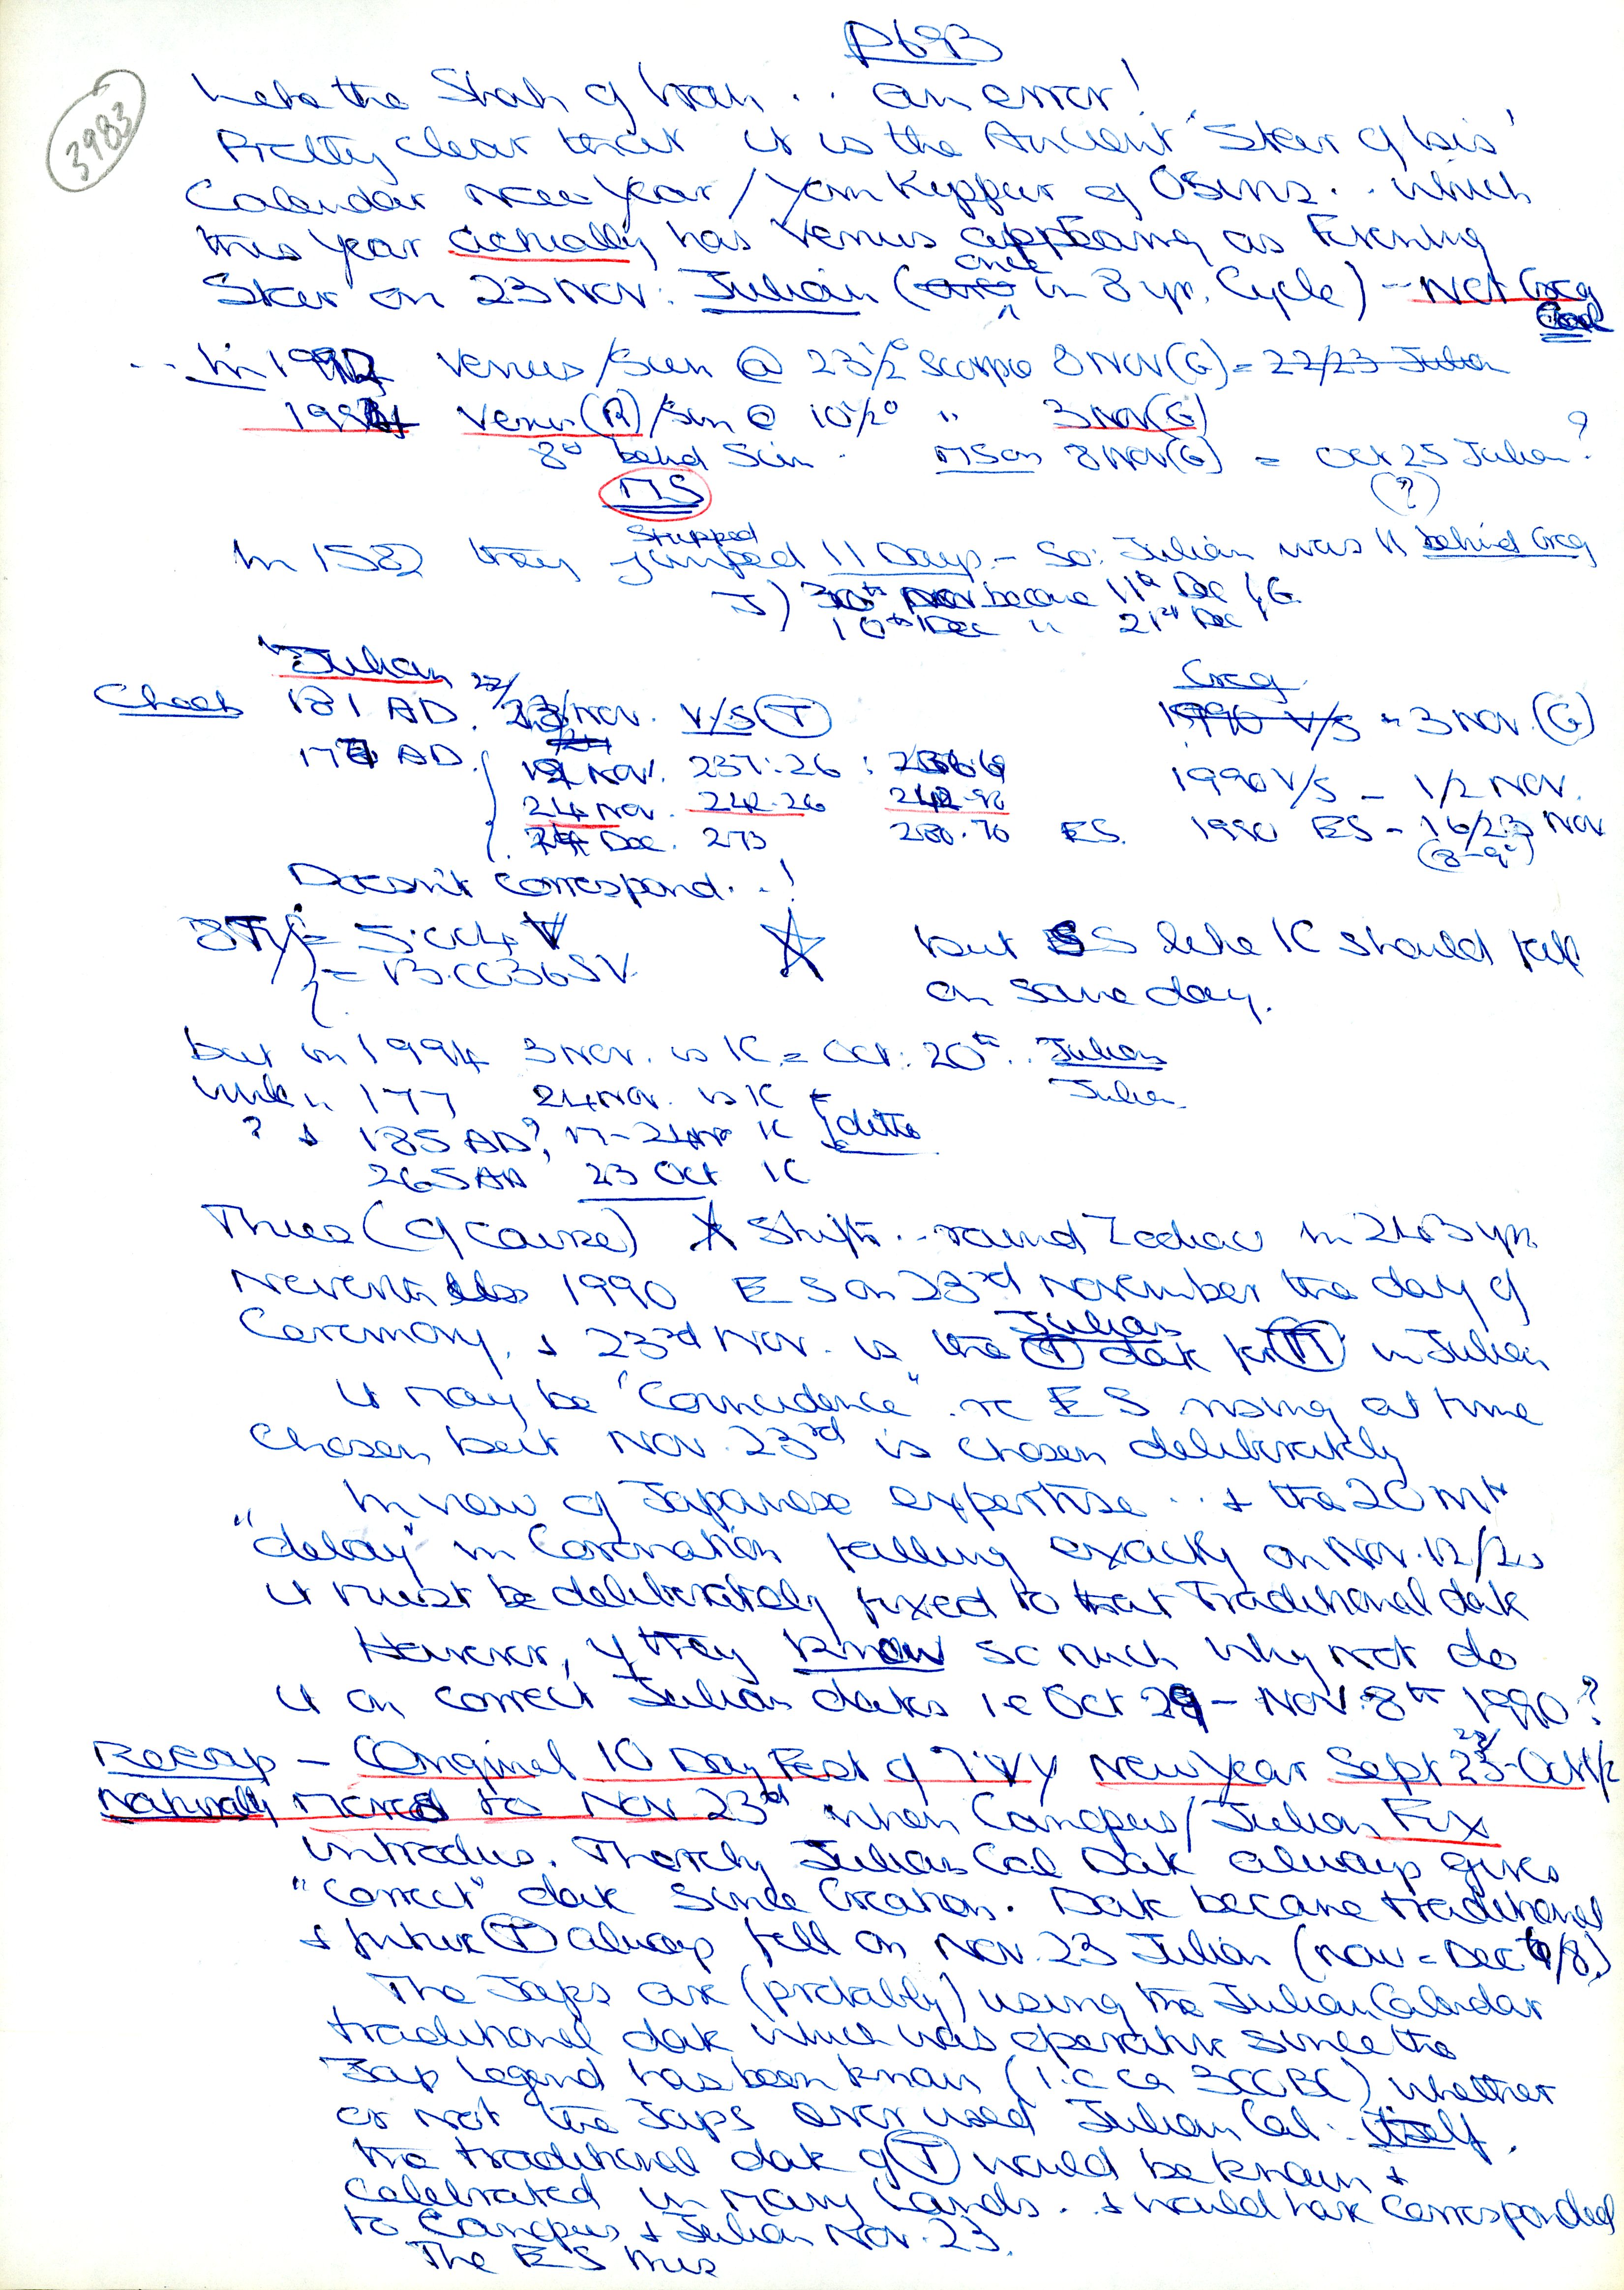 P69B
3983
like the Shah of Iran .. an error!
Pretty clear that it is the Ancient 'Star of Isis'
Calendar New Year / Yom Kippur of Osiris .. which
this year actually has Venus appearing as Evening
Star on 23 Nov: Julian (once in 8 yr. Cycle) - Not Greg
Cal
.. In 1992 Venus/Sun @ 23½° Scorpio 8 Nov (G) = 22/23 Julian
1994 Venus (R)/Sun @ 10½° " 3 Nov (G)
8° behind Sun. MS on 8 Nov (G) = Oct 25 Julian?
MS (?)
In 1582 they Stepped jumped 11 Days - So: Julian was 11 behind Greg
J) 30th Nov become 11th Dec (G
10th Dec " 21st Dec
Julian Greg
Check 181 AD. 22/23/Nov. V/S (T) 1990 V/S - 3 Nov. (G)
177 AD. Nov. 237.26 : 1990 V/S - 1/2 Nov.
24 Nov. 242.26 242.98
Dec. 273 280.70 ES. 1990 ES - 16/23 Nov
(8-9°)
Doesn't correspond..!
8 TY = 5.004 V
= 13.0036 SV.
but ES like IC should fall
on same day.
but in 1994 3 Nov. is IC = Oct: 20th. Julian
while in 177 24 Nov. is IC Julian
? & 185 AD?, 17-24 Nov IC ditto
265 AD 23 Oct IC
Thus (of course) ☆ Shifts .. round Zodiac in 243 yrs
Nevertheless 1990 ES on 23rd November the day of
Ceremony, & 23rd Nov. is the Julian (T) date for (T) in Julian
It may be "Coincidence" re ES rising at time
Chosen but Nov. 23rd is chosen deliberately
In view of Japanese expertise .. & the 20 mth
"delay" in Coronation falling exactly on Nov. 12/23
it must be deliberately fixed to that Traditional date
However, if they know so much why not do
it on correct Julian dates i.e Oct 29 - Nov. 8th 1990?
Recap - Original 10 Day Fest of New Year Sept 22/23 - Oct 1/2
Naturally moved to Nov 23rd when Canopus/Julian Fix
introdus. Thereby Julian Cal Date always gives
"Correct" date since Creation. Date became traditional
& future (T) always fell on Nov. 23 Julian (now = Dec 7/8)
The Japs are (probably) using the Julian Calendar
traditional date which was operative since the
Jap Legend has been known (i.e ca 300 BC) whether
or not the Japs ever used Julian Cal: itself.
the traditional date of (T) would be known &
Celebrated in many Lands .. & would have corresponded
to Canopus & Julian Nov. 23.
The ES thus